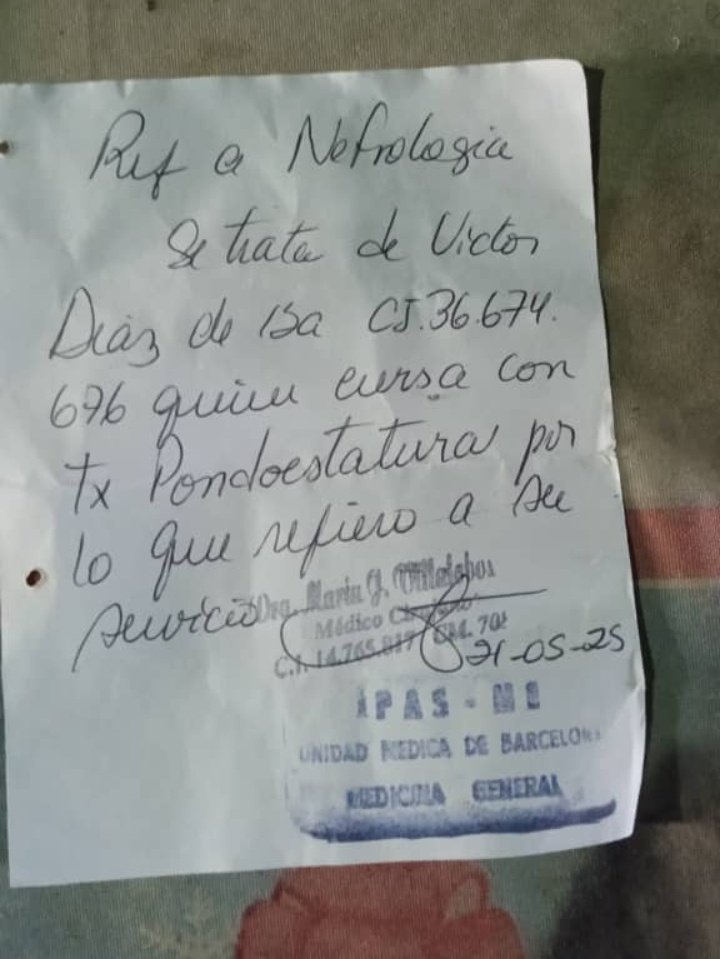 Ref a Nefrologia
Se trata de Victor
Diaz de 13a CI.36.674.
676 quien cursa con
tx Pondoestatura por
lo que refiero a su
servicio
Dra. Maria J. Villalobos
Médico Cirujano
C.I. 14.765.817 CM. 701
21-05-25
IPAS-ME
UNIDAD MEDICA DE BARCELONA
MEDICINA GENERAL